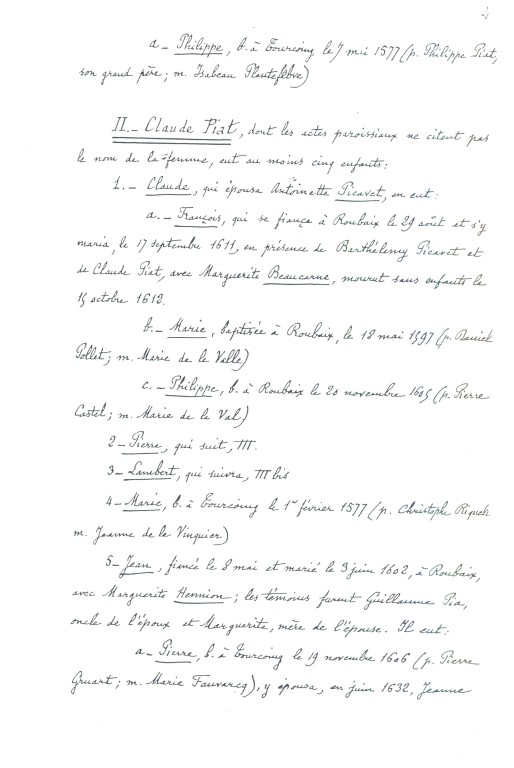 4
a - Philippe, b. à Tourcoing le 7 mai 1577 (p. Philippe Piat,
son grand père; m. Isabeau Plantefebve)
II.- Claude Piat, dont les actes paroissiaux ne citent pas
le nom de la femme, eut au moins cinq enfants:
1.- Claude, qui épousa Antoinette Picavet, en eut:
a.- François, qui se fiança à Roubaix le 29 août et s'y
maria, le 17 septembre 1611, en présence de Berthélemy Picavet et
de Claude Piat, avec Marguerite Beaucarne, mourut sans enfants le
15 octobre 1612.
b.- Marie, baptisée à Roubaix, le 18 mai 1597 (p.
Pollet; m. Marie de la Ville)
c.- Philippe, b. à Roubaix le 20 novembre 1605 (p. Pierre
Castel; m. Marie de le Val)
2 - Pierre, qui suit, III.
3 - Lambert, qui suivra, III bis
4 - Marie, b. à Tourcoing le 1er février 1577 (p. Christophe
m. Jeanne de le Vinquier)
5 - Jean, fiancé le 8 mai et marié le 3 juin 1602, à Roubaix,
avec Marguerite Hennion; les témoins furent Guillaume Pia,
oncle de l'époux et Marguerite, mère de l'épouse. Il eut:
a - Pierre, b. à Tourcoing le 19 novembre 1606 (p. Pierre
Gruart; m. Marie Fauvarcq), y épousa, en juin 1632, Jeanne